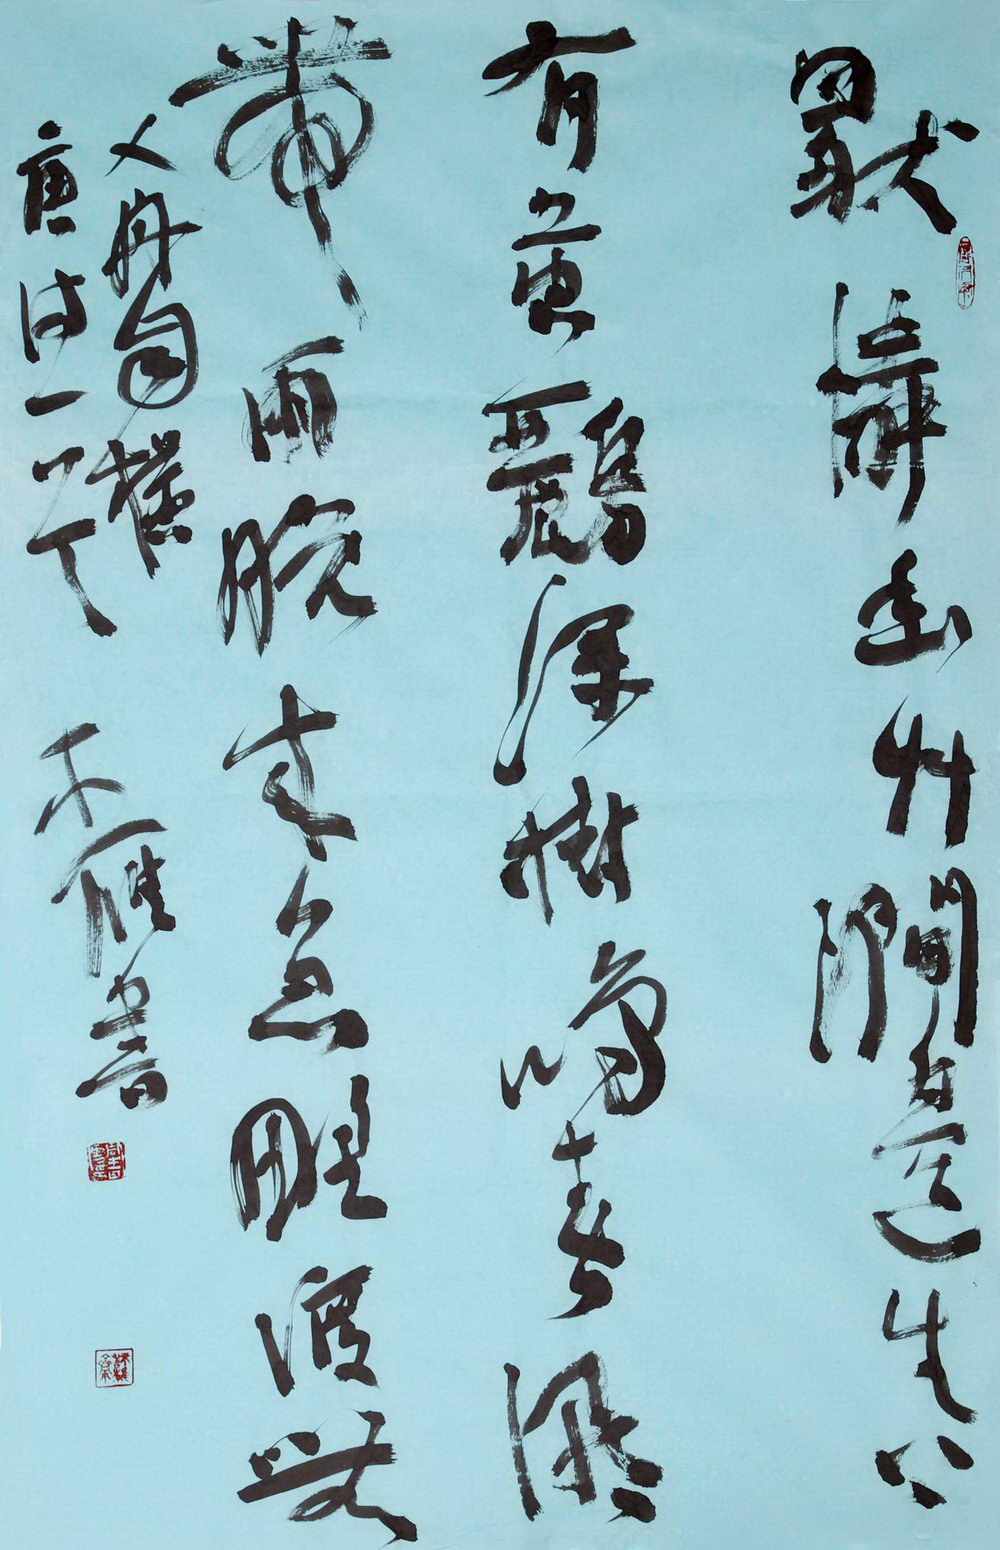 獨憐幽艸澗邊生上
有黃鸝深樹鳴春潮
帶雨晚來急野渡無
人舟自橫
唐詩一首 木雁書